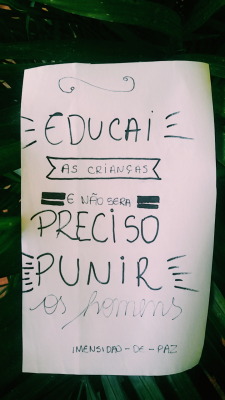 EDUCAI
AS CRIANÇAS
E NÃO SERA
PRECISO
PUNIR
os homens
IMENSIDAO-DE-PAZ